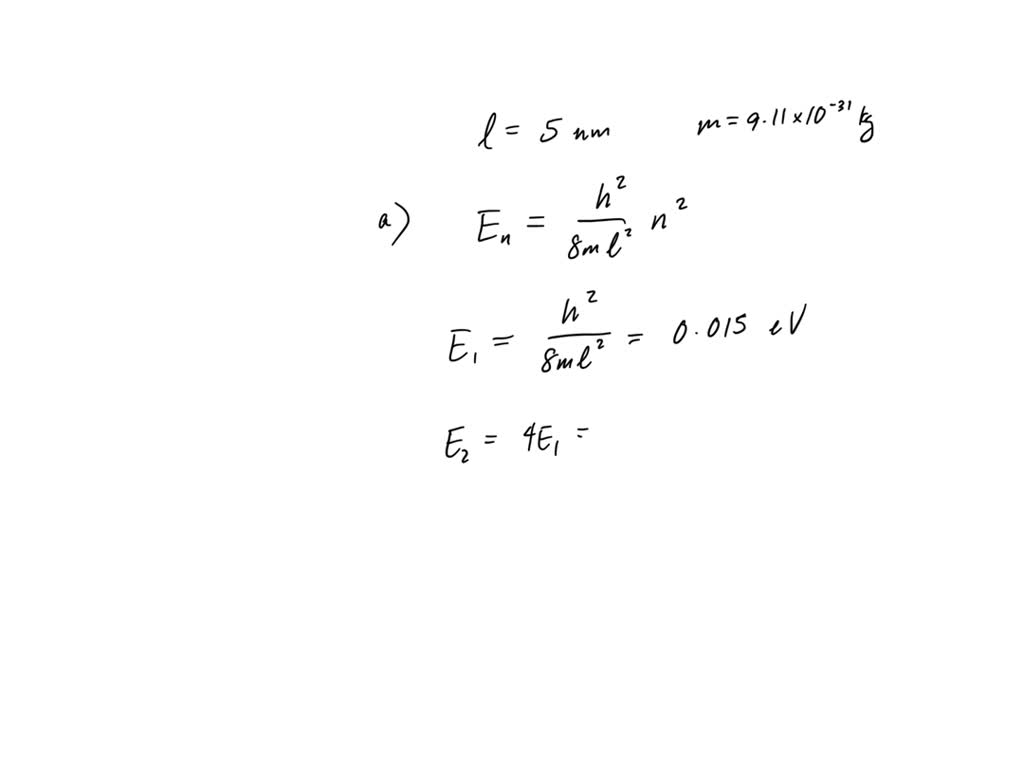 l = 5 nm m = 9.11 × 10⁻³¹ kg
a) Eₙ = h² / 8ml² n²
E₁ = h² / 8ml² = 0.015 eV
E₂ = 4E₁ =